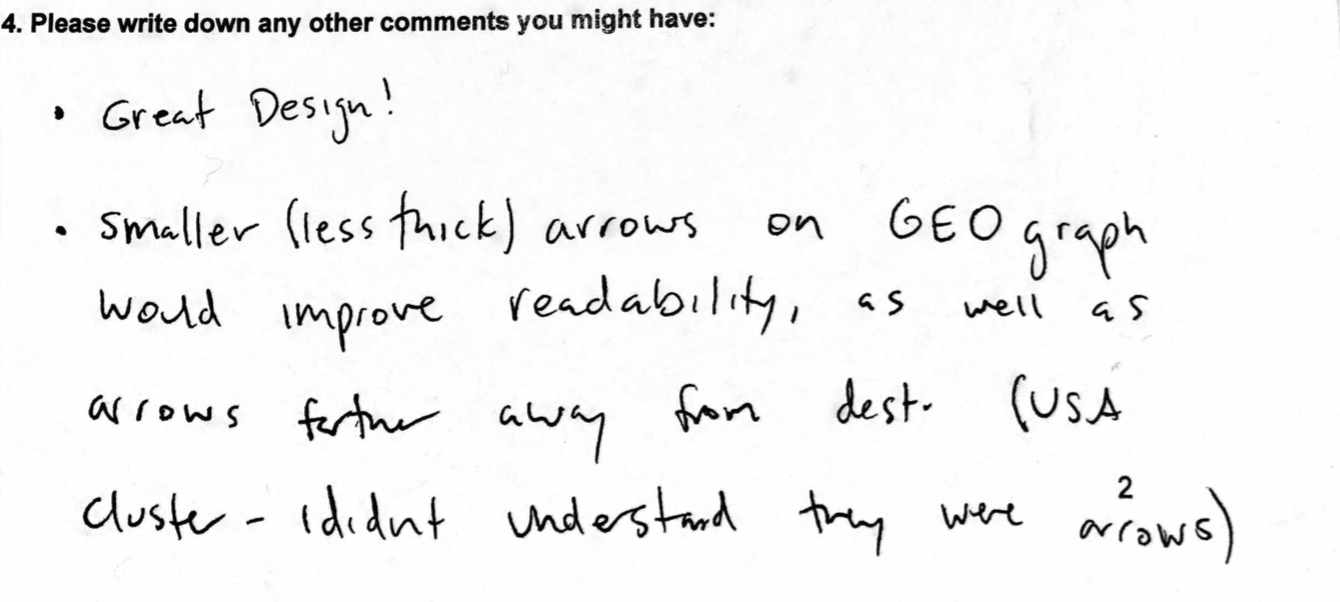 4. Please write down any other comments you might have:
• Great Design!
• Smaller (less thick) arrows on GEO graph
would improve readability, as well as
arrows farther away from dest. (USA
cluster - I didnt understand they were 2 arrows)